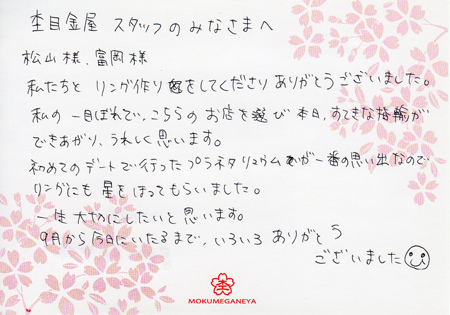 杢目金屋 スタッフのみなさまへ
松山様、富岡様
私たちと リング作りをしてくださり ありがとうございました。
私の 一目ぼれで、こちらの お店を選び 本日、すてきな指輪が
できあがり、うれしく 思います。
初めてのデートで行ったプラネタリュウムが一番の思い出なので
リングにも 星をほってもらいました。
一生 大切にしたいと 思います。
9月から今日にいたるまで、いろいろ ありがとう
ございました
MOKUMEGANEYA